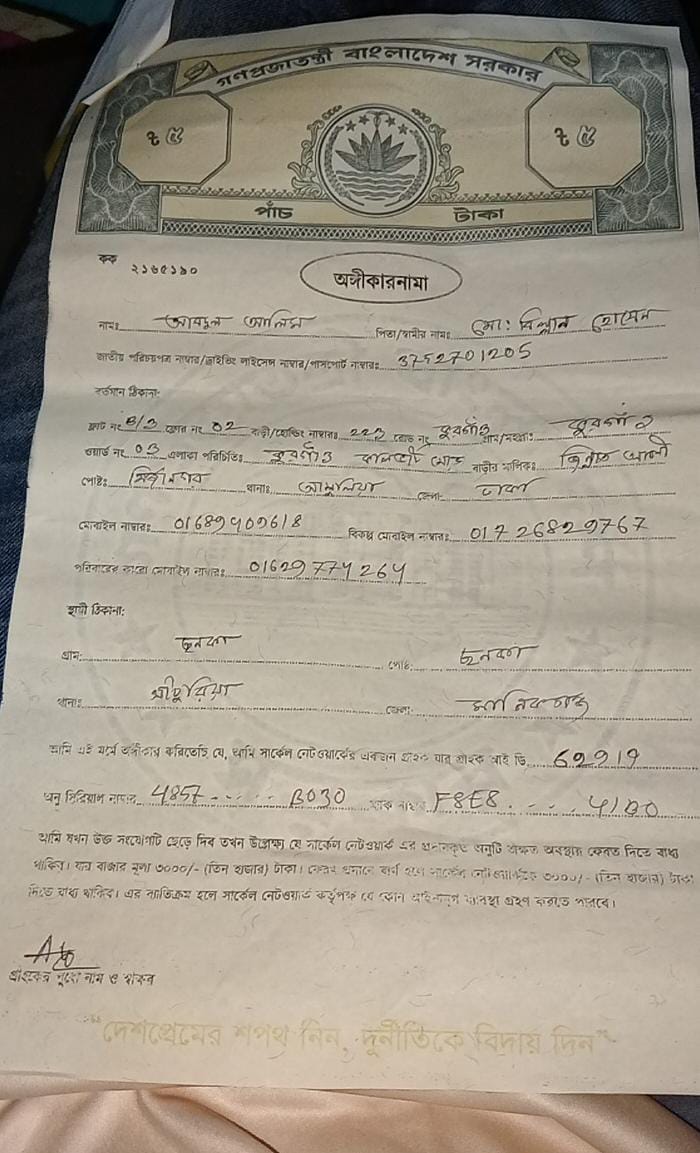 গণপ্রজাতন্ত্রী বাংলাদেশ সরকার
৳ ৫ ৳ ৫
পাঁচ টাকা
কক ২১৬৫১৯০
অঙ্গীকারনামা
নামঃ আবদুল আলিম পিতা/স্বামীর নামঃ মো: বিল্লাল হোসেন
জাতীয় পরিচয়পত্র নাম্বার/ড্রাইভিং লাইসেন্স নাম্বার/পাসপোর্ট নাম্বারঃ 3752701205
বর্তমান ঠিকানা:
ফ্লাট নং B/3 ফ্লোর নং 02 বাড়ী/হোল্ডিং নাম্বারঃ 223 রোড নং গ্রাম/মহল্লাঃ
ওয়ার্ড নং 03 এলাকা পরিচিতিঃ বাড়ীর মালিকঃ আলী
পোষ্টঃ থানাঃ আশুলিয়া জেলা: ঢাকা
মোবাইল নাম্বারঃ 01689409618 বিকল্প মোবাইল নাম্বারঃ 01726829767
পরিবারের কারো মোবাইল নাম্বারঃ 01629774264
স্থায়ী ঠিকানা:
গ্রাম: ছনকা পোষ্ট: ছনকা
থানাঃ জেলা: মানিকগঞ্জ
আমি এই মর্মে অঙ্গীকার করিতেছি যে, আমি সার্কেল নেটওয়ার্কের একজন গ্রাহক যার গ্রাহক আই ডি 62919
অনু সিরিয়াল নাম্বার 4857 ...... B030 ম্যাক নাম্বার F8E8 ..... 41D0
আমি যখন উক্ত সংযোগটি ছেড়ে দিব তখন উল্লেখ্য যে সার্কেল নেটওয়ার্ক এর প্রদানকৃত অনুটি অক্ষত অবস্থায় ফেরত দিতে বাধ্য
থাকিব। যার বাজার মূল্য ৩০০০/- (তিন হাজার) টাকা। ফেরত প্রদানে ব্যর্থ হলে সার্কেল নেটওয়ার্ককে ৩০০০/- (তিন হাজার) টাকা
দিতে বাধ্য থাকিব। এর ব্যতিক্রম হলে সার্কেল নেটওয়ার্ক কর্তৃপক্ষ যে কোন আইনানুগ ব্যবস্থা গ্রহণ করতে পারবে।
গ্রাহকের পুরো নাম ও স্বাক্ষর
"দেশপ্রেমের শপথ নিন, দুর্নীতিকে বিদায় দিন"